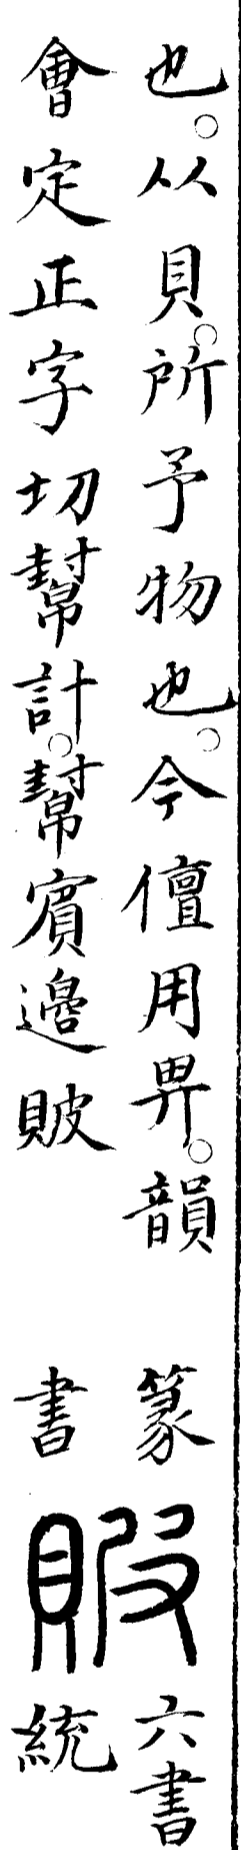 也。从貝。所予物也。今儃用畀。韻
會定正字切幫計。幫賓邊貱
篆
書
六書
統